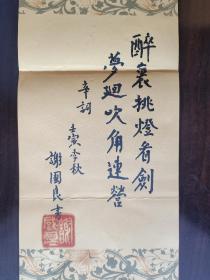 醉裏挑燈看劍
夢迴吹角連營
辛詞
壬寅季秋
謝國良書